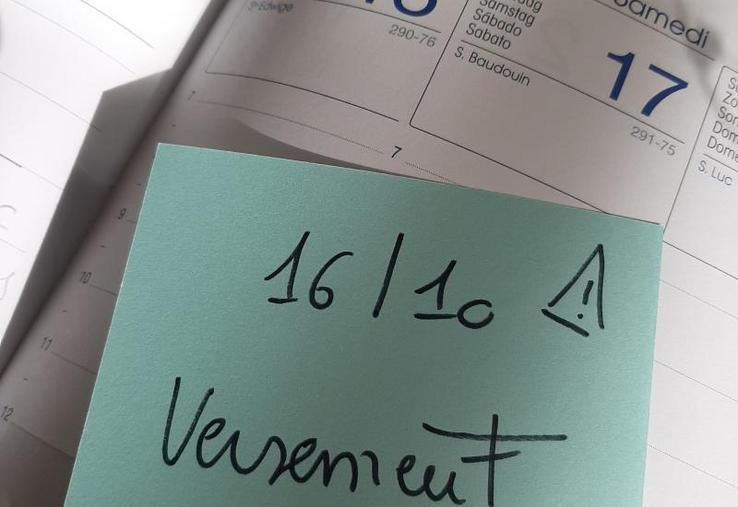 S Edwige
290-76
Samstag
Sábado
Sabato
S. Baudouin
Samedi
17
291-75
S. Luc
7
9
10
11
12
16/10 ⚠
Versement